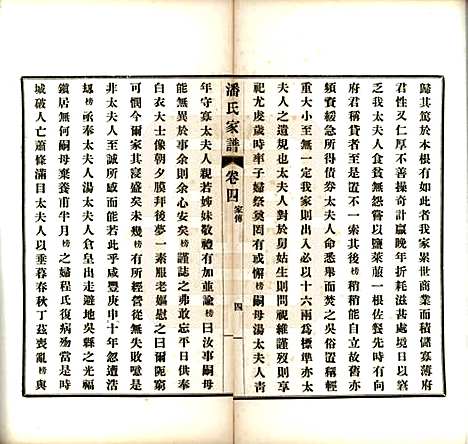 歸其篤於本根有如此者我家累世商業而積儲寡薄府
君性又仁厚不善操奇計贏晚年折耗益甚所遇日以窘
乏我太夫人食貧無怨嘗以鹽萊菔一根佐餐先時戚友
府君稱貸者至是不一索其後榜稍稍能自立故舊亦
頻賓緩急所得債券太夫人命悉舉而焚之吳俗置稱輕
重大小至無一定我家則出入必以十六兩為標準亦太
夫人之遺規也太夫人對於舅姑生則問視維謹歿則享
祀尤虔歲時率子婦祭奠罔有或懈榜嗣母湯太夫人青
潘氏家譜
卷四
家傳
四
年守寡太夫人親若姊妹敬禮有加並諭榜曰汝事嗣母
能無異於事余則余心安矣榜謹誌之弗敢忘平日供奉
白衣大士像朝夕膜拜後夢一素服老嫗慰之曰爾阨窮
可憫今爾家其寢盛矣未幾而榜所經營從無失敗噫是
非太夫人至誠所感而能若此乎咸豐庚申十年忽遭
榜亟奉太夫人湯太夫人倉皇出走避地吳縣之光福
鎮居無何嗣母棄養甫半月榜之婦程氏復病歿當是時
城破人亡蕭條滿目太夫人以垂暮春秋丁茲喪亂榜與